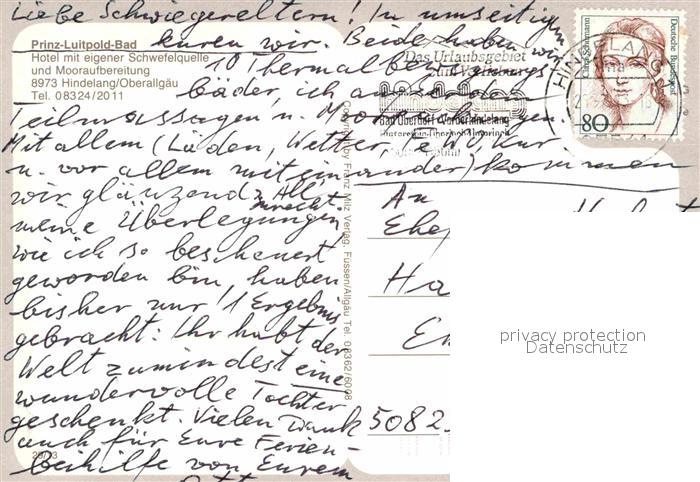 Liebe Schwiegereltern! In umseitigen
kuren wir. Beide haben wir
10 Thermalbewegungs-
bäder, ich ausserdem
Teilmassagen u. Moorpackungen.
Mit allem (Läden, Wetter, Kur
u. vor allem miteinander) kommen
wir glänzend zurecht. All
meine Überlegungen
wie ich so bescheuert
geworden bin, haben
bisher nur 1 Ergebnis
gebracht: Ihr habt der
Welt zumindest eine
wundervolle Tochter
geschenkt. Vielen Dank
auch für Eure Ferien-
beihilfe von Eurem
Prinz-Luitpold-Bad
Hotel mit eigener Schwefelquelle
und Mooraufbereitung
8973 Hindelang/Oberallgäu
Tel. 08324/2011
Copyright by Franz Milz Verlag, Füssen/Allgäu Tel. 08362/6008
Das Urlaubsgebiet
Hindelang
Bad Oberdorf Vorderhindelang
HINDELANG
Clara Schumann
Deutsche Bundespost
80
An
Ehe
Ha
En
5082
privacy protection
Datenschutz